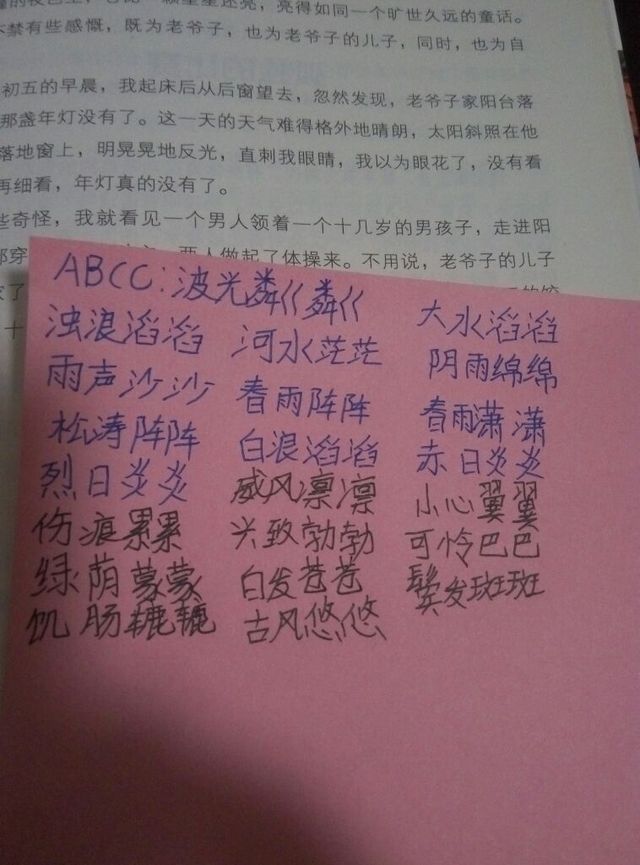 的夜色里,它比一颗星星还亮,亮得如同一个旷世久远的童话。
禁有些感慨,既为老爷子,也为老爷子的儿子,同时,也为自
初五的早晨,我起床后从后窗望去,忽然发现,老爷子家阳台落
那盏年灯没有了。这一天的天气难得格外地晴朗,太阳斜照在他
落地窗上,明晃晃地反光,直刺我眼睛,我以为眼花了,没有看
再细看,年灯真的没有了。
些奇怪,我就看见一个男人领着一个十几岁的男孩子,走进阳
都穿 两人做起了体操来。不用说,老爷子的儿子
ABCC:波光粼粼
大水滔滔
浊浪滔滔 河水茫茫 阴雨绵绵
雨声沙沙 春雨阵阵 春雨潇潇
松涛阵阵 白浪滔滔 赤日炎炎
烈日炎炎 威风凛凛 小心翼翼
伤痕累累 兴致勃勃 可怜巴巴
绿荫蒙蒙 白发苍苍 鬓发斑斑
饥肠辘辘 古风悠悠